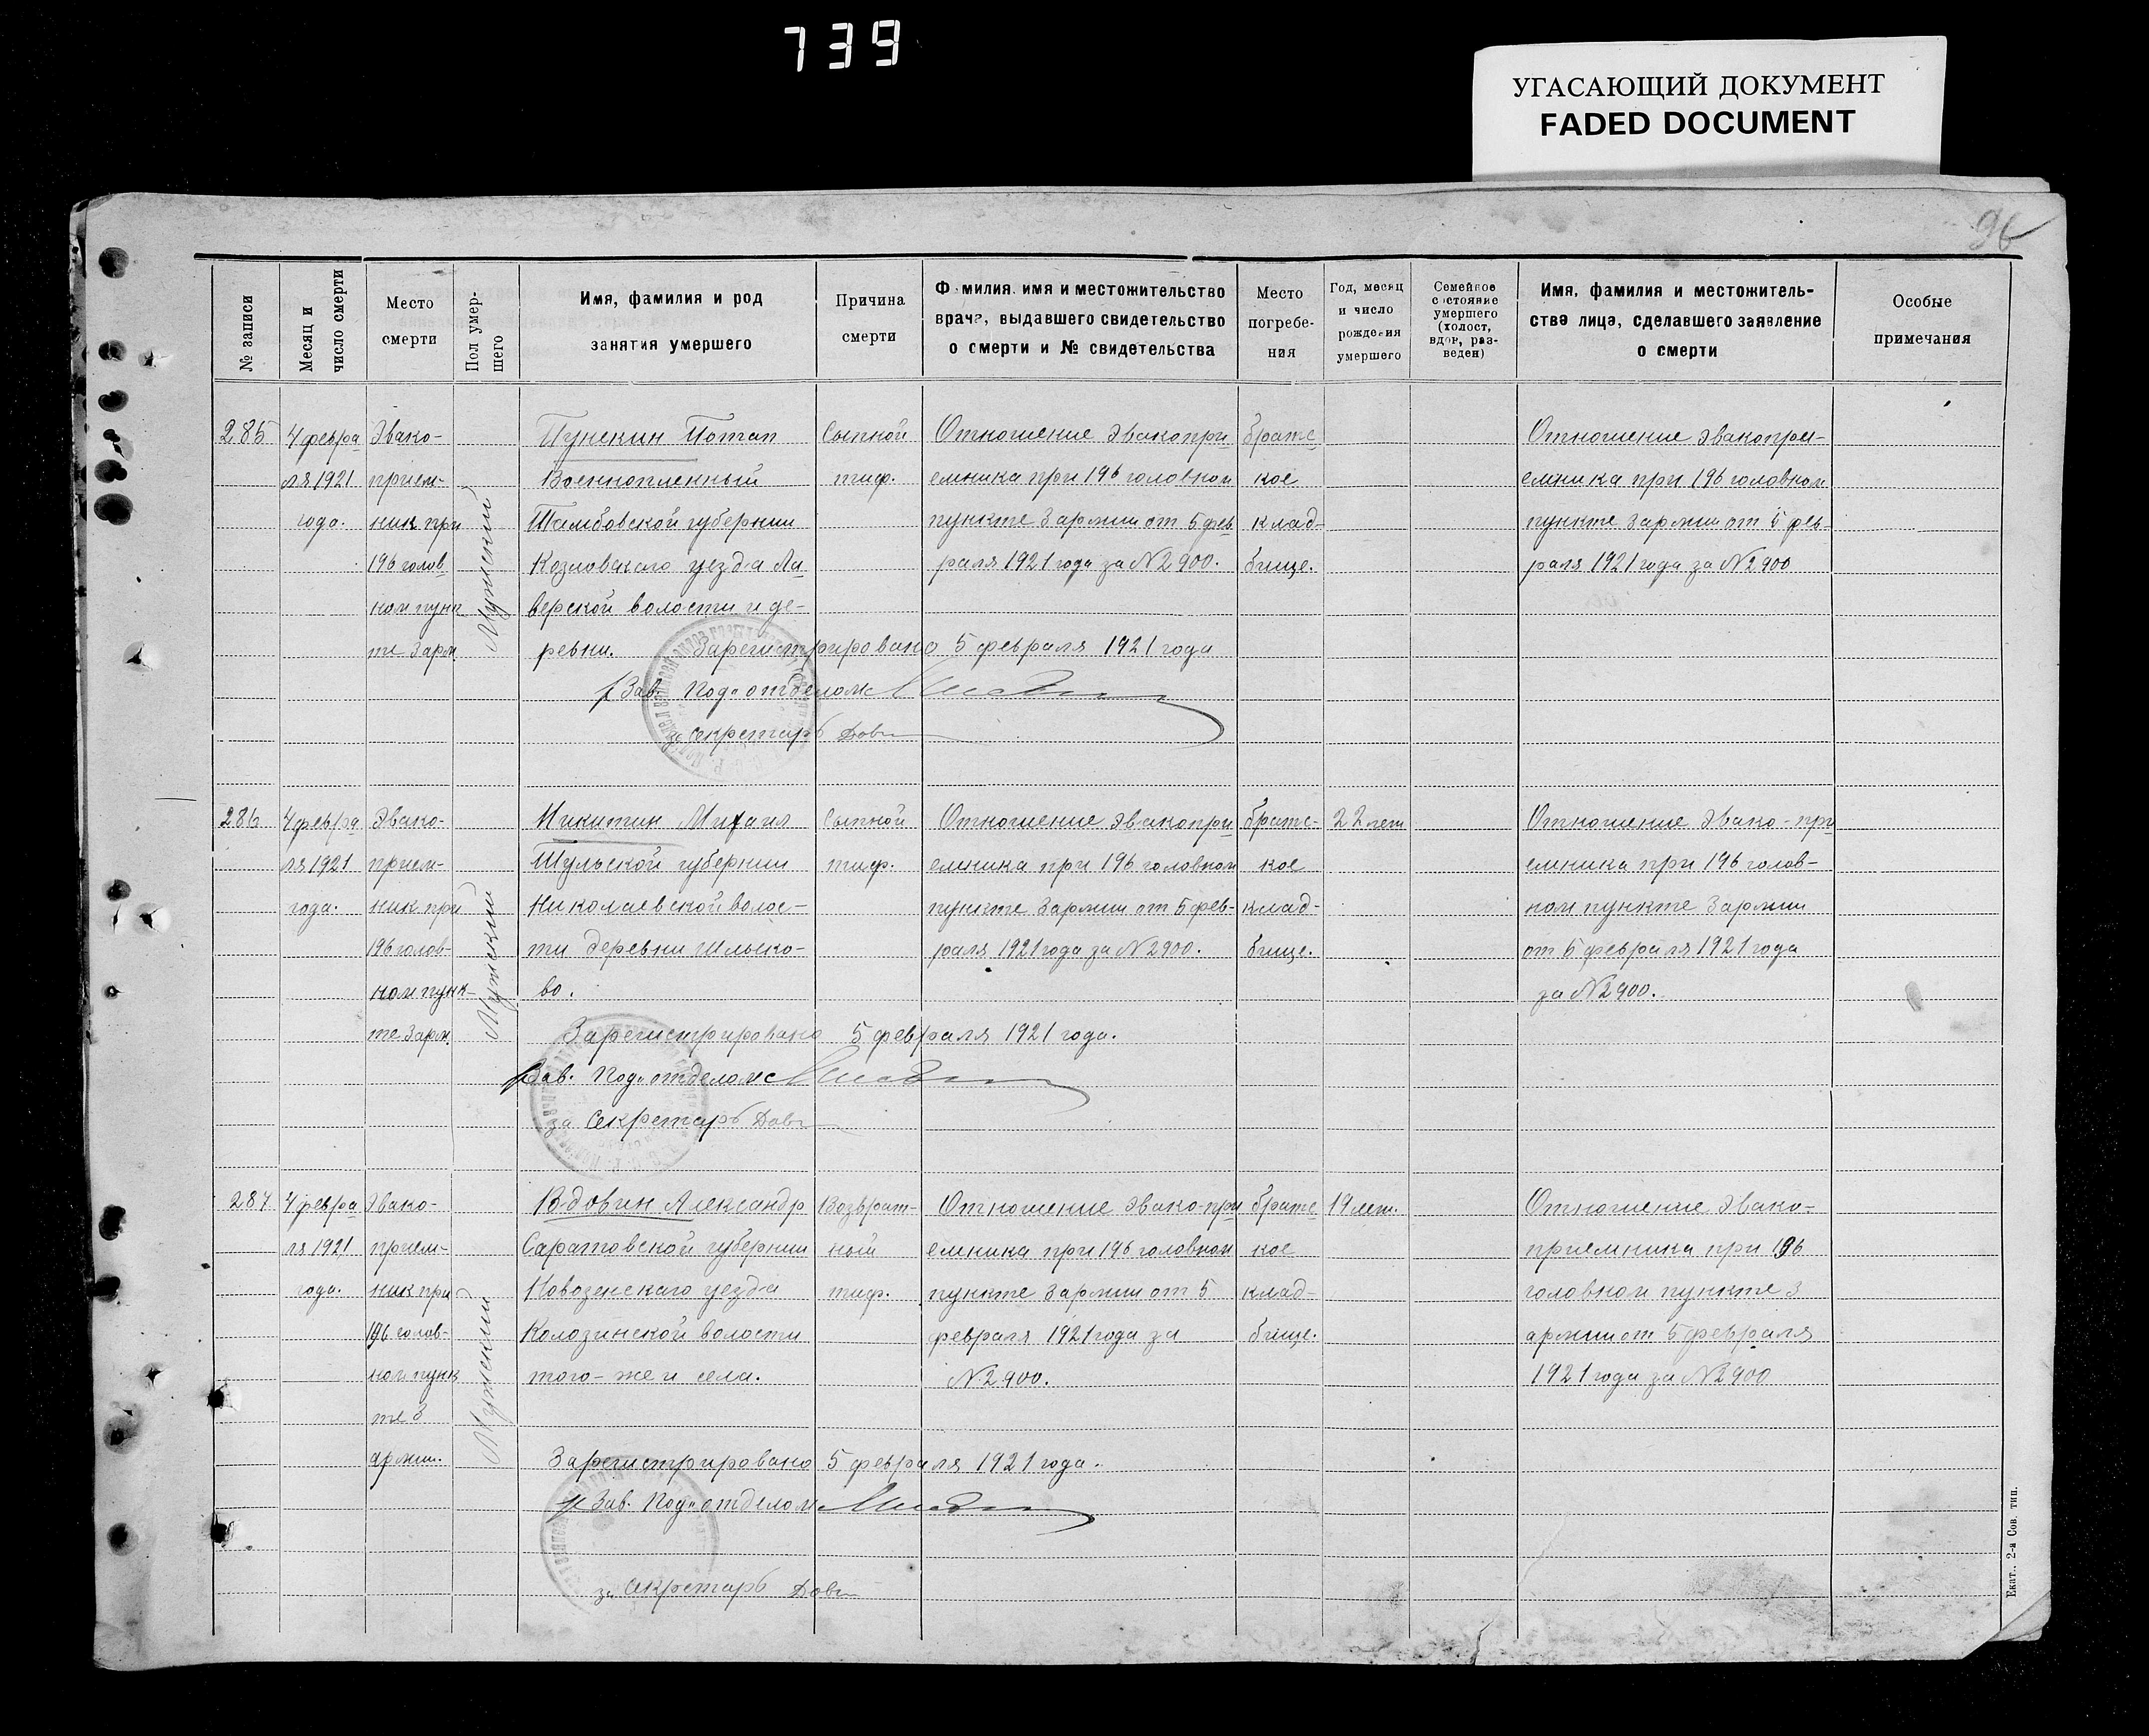 739
УГАСАЮЩИЙ ДОКУМЕНТ
FADED DOCUMENT
96
№ записи
Месяц и
число смерти
Место
смерти
Пол умер-
шего
Имя, фамилия и род
занятия умершего
Причина
смерти
Фамилия, имя и местожительство
врача, выдавшего свидетельство
о смерти и № свидетельства
Место
погребе-
ния
Год, месяц
и число
рождения
умершего
Семейное
состояние
умершего
(холост,
вдов, раз-
веден)
Имя, фамилия и местожитель-
ство лица, сделавшего заявление
о смерти
Особые
примечания
285
4 февра
ля 1921
года.
Эвако-
прием-
ник при
196 голов
ном пунк
те 3 арм
Мужской
Потап
Военнопленный
Тамбовской губернии
Козловского уезда Ла
верской волости и де-
ревни.
Сыпной
тиф.
Отношение Эвакопри
емника при 196 головном
пункте 3 армии от 5 фев
раля 1921 года за N 2900.
братс
кое
клад-
бище.
Отношение эвакопри-
емника при 196 головном
пункте 3 армии от 5 фев-
раля 1921 года за N 2900
Зарегистрировано 5 февраля 1921 года
Зав. Под-отделом
за Секретарь
286
4 февра
ля 1921
года.
Эвако-
прием-
ник при
196 голов-
ном пунк-
те 3 арм.
Мужской
Никитин Михаил
Тульской губернии
Николаевской волос-
ти деревни
во.
Сыпной
тиф.
Отношение Эвакопри
емника при 196 головном
пункте 3 армии от 5 фев-
раля 1921 года за N 2900.
братс-
кое
клад-
бище.
22 лет
Отношение Эвако-при
емника при 196 голов-
ном пункте 3 армии
от 5 февраля 1921 года
за N 2900.
Зарегистрировано 5 февраля 1921 года.
Зав. Под-отделом
за Секретарь
287
4 февра
ля 1921
года.
Эвако-
прием-
ник при
196 голов-
ном пунк
те 3
армии.
Мужской
Вдовин Александр
Саратовской губернии
Новозенскаго уезда
Колозинской волости
того-же и села.
Возврат-
ный
тиф.
Отношение Эвако-при
емника при 196 головном
пункте 3 армии от 5
февраля 1921 года за
N 2900.
братс
кое
клад-
бище.
19 лет.
Отношение Эвако-
приемника при 196
головном пункте 3
армии от 5 февраля
1921 года за N 2900
Зарегистрировано 5 февраля 1921 года.
Зав. Под-отделом
за Секретарь
Екат. 2-я Сов. тип.